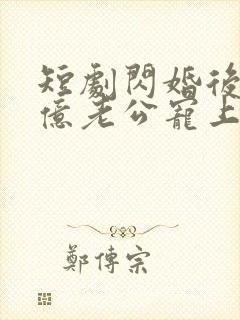 短劇閃婚後
億老公寵上
鄭傳宗